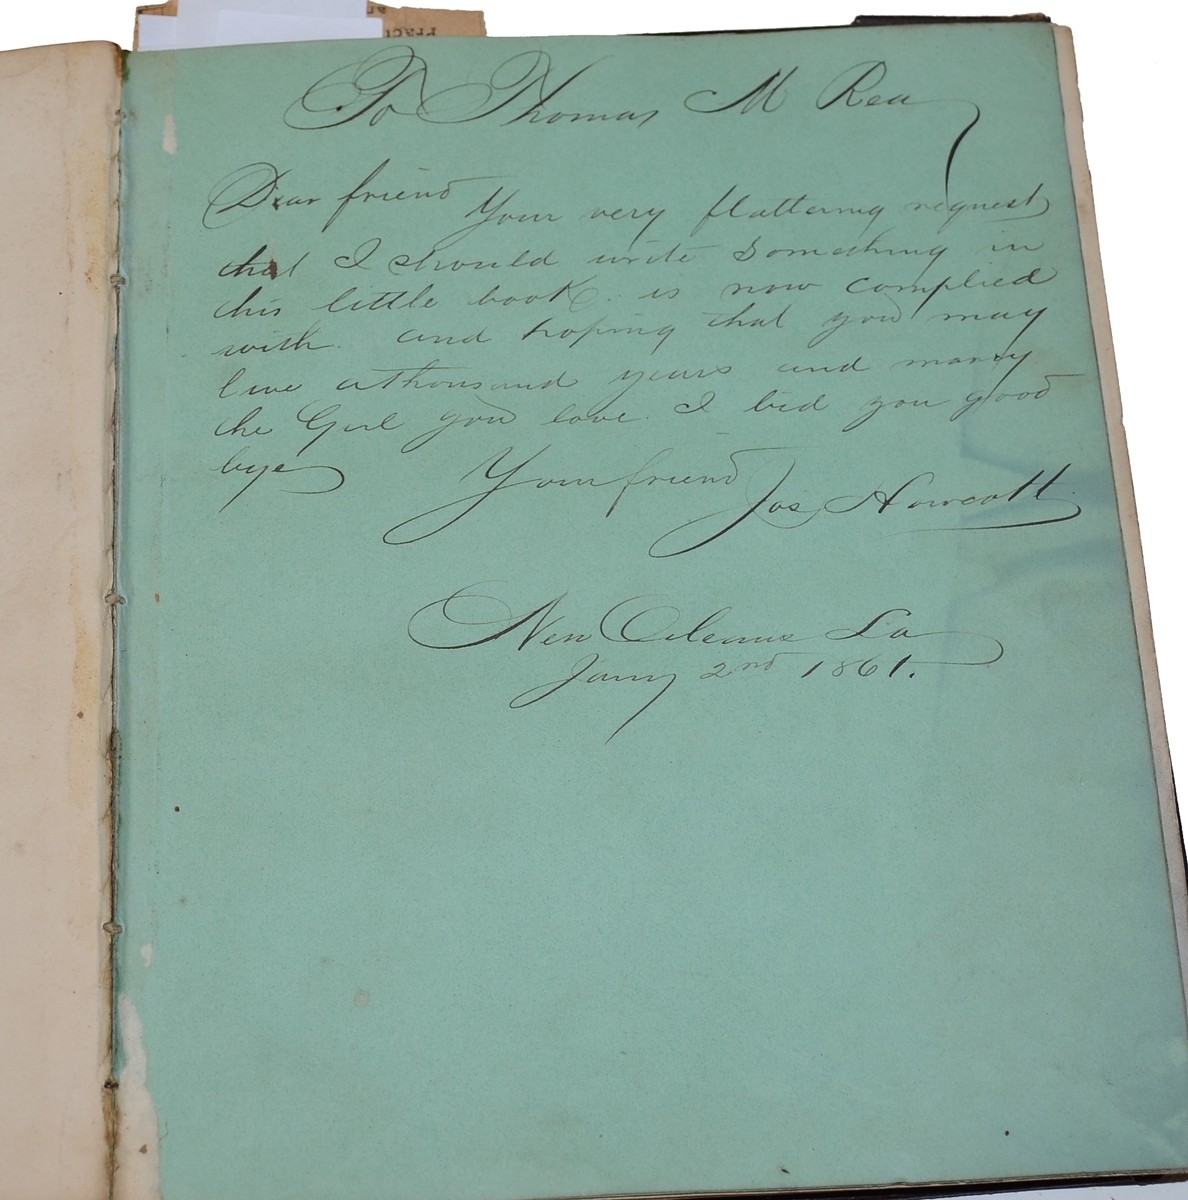 To Thomas M Rea
Dear friend Your very flattering request
that I should write something in
this little book. is now complied
with. and hoping that you may
live a thousand years and marry
the Girl you love. I bid you good
bye
Your friend Jos Howcott
New Orleans La
Jany 2nd 1861.